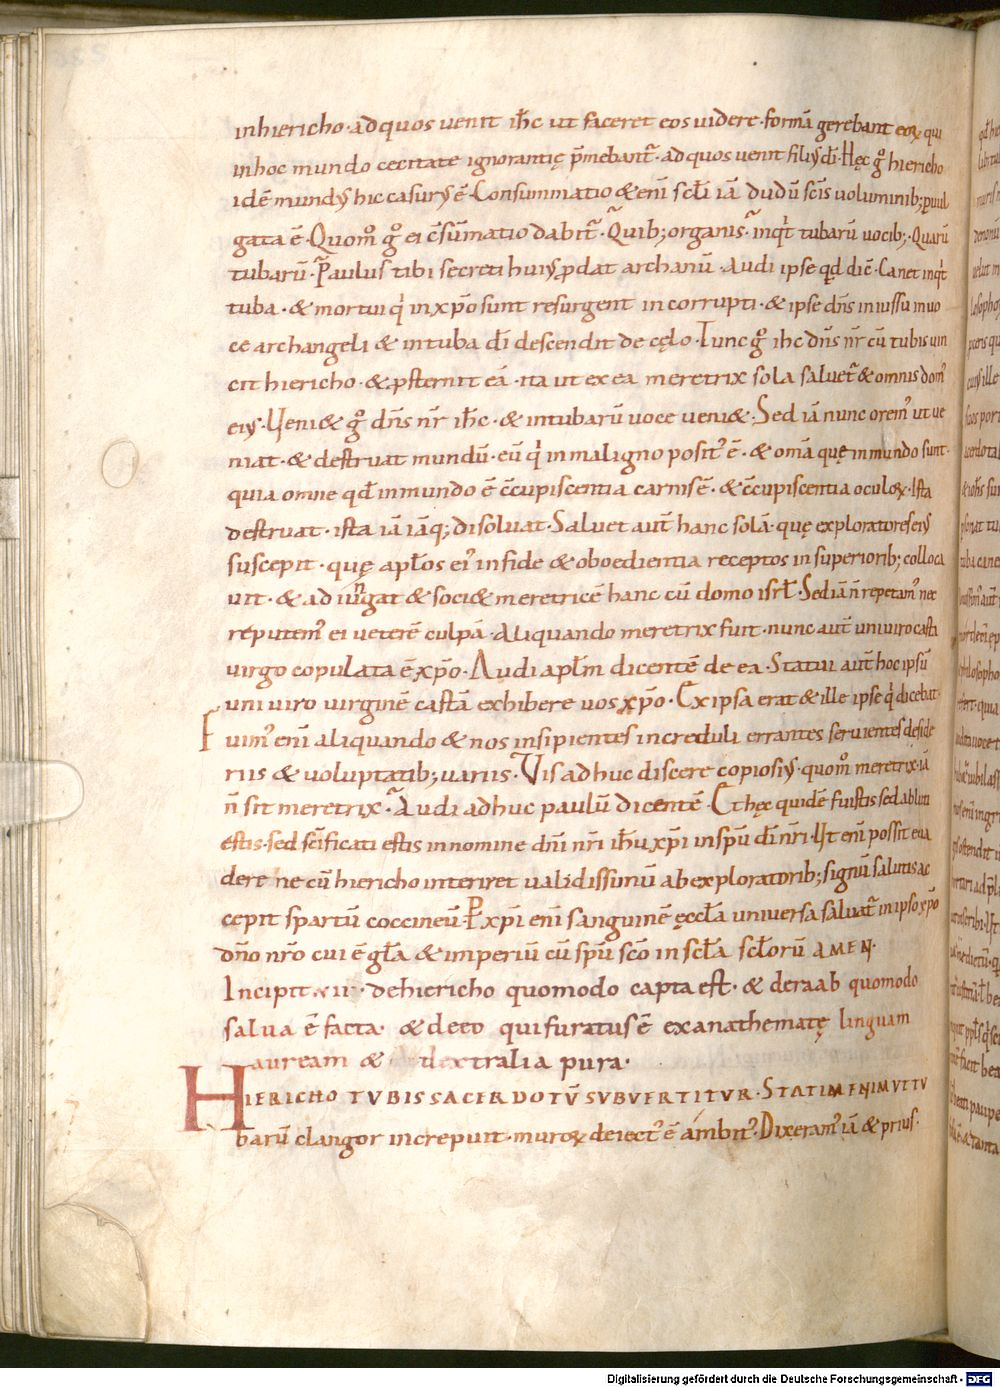 inhiericho · adquos uenit ihc̄ ut faceret eos uidere · formā gerebant eoꝝ qui
inhoc mundo cecitate ignorantię p̄mebant᷑ · adquos uenit filiꝰ dī · Hęc gͦ hiericho
idē mundꝰ hic casurꝰ ē · Consummatio & enī sc̄li iā dudū sc̄is uoluminib; puul
gata ē · Quom̊ gͦ ei c̄sūmatio dabit᷑ · Quib; organis · inqͥt tubarū uocib; · Quarū
tubarū · Paulus tibi secreti huiꝰ ꝓdat archanū · Audi ipse qd̄ dic̄ · Canet inqͥt
tuba · & mortui qͥ in xp̄o sunt resurgent incorrupti · & ipse dn̄s iniussu inuo
ce archangeli & intuba dī descendit de cęlo · Tunc gͦ ihc dn̄s nr̄ cū tubis uin
cit hiericho · & ꝓsternit eā · ita ut ex ea meretrix sola saluet᷑ & omnis domꝰ
eiꝰ · Ueni& gͦ dn̄s nr̄ ih̄c · & intubarū uoce ueni& · Sed iā nunc oremꝰ ut ue
niat · & destruat mundū · eū qͥ inmaligno positꝰ ē · & om̄a quę inmundo sunt ·
quia omne qd̄ inmundo ē c̄cupiscentia carnis ē · & c̄cupiscentia oculoꝝ · Ista
destruat · ista iā iāq; disoluat · Saluet aut̄ hanc solā · quę exploratores eiꝰ
suscepit · quę apl̄os eiꝰ infide & oboedientia receptos insuperiorib; colloca
uit · & adiungat & soci& meretricē hanc cū domo isrl̄ · Sed iā n̄ repetamꝰ nec
reputemꝰ ei ueterē culpā · Aliquando meretrix fuit · nunc aut̄ uniuiro casta
virgo copulata ē xp̄o · Audi apl̄m dicentē de ea · Statui aut̄ hoc ipsū
uni uiro virginē castā exhibere uos xp̄o · Ex ipsa erat & ille ipse qͥ dicebat ·
Fuimꝰ enī aliquando & nos insipientes increduli errantes seruientes deside
riis & uoluptatib; uariis · Vis adhuc discere copiosiꝰ · quom̊ meretrix iā
n̄ sit meretrix · Audi adhuc paulū dicentē · Et hęc quidē fuistis sed abluti
estis · sed sc̄ificati estis innomine dn̄i nr̄i ih̄u xp̄i inspū dī nr̄i · Ut enī possit eua
dere ne cū hiericho interiret ualidissimū ab exploratorib; signū salutis ac
cepit spartū coccineū · P xp̄i enī sanguinē ęccl̄a uniuersa saluat᷑ inipso xp̄o
dn̄o nr̄o cui ē gl̄a & imperiū cū sp̄u sc̄o in sc̄la sc̄lorū AMEN ·
Incipit · vii · dehiericho quomodo capta est · & deraab quomodo
salua ē facta · & deeo qui furatus ē exanathematę linguam
auream & dextralia pura ·
HIERICHO TVBIS SACERDOTŪ SVBVERTITVR · STATIM ENIM VT TV
barū clangor increpuit · muroꝝ deiectꝰ ē ambitꝰ · Dixeramꝰ iā & priuſ ·
Digitalisierung gefördert durch die Deutsche Forschungsgemeinschaft - DFG